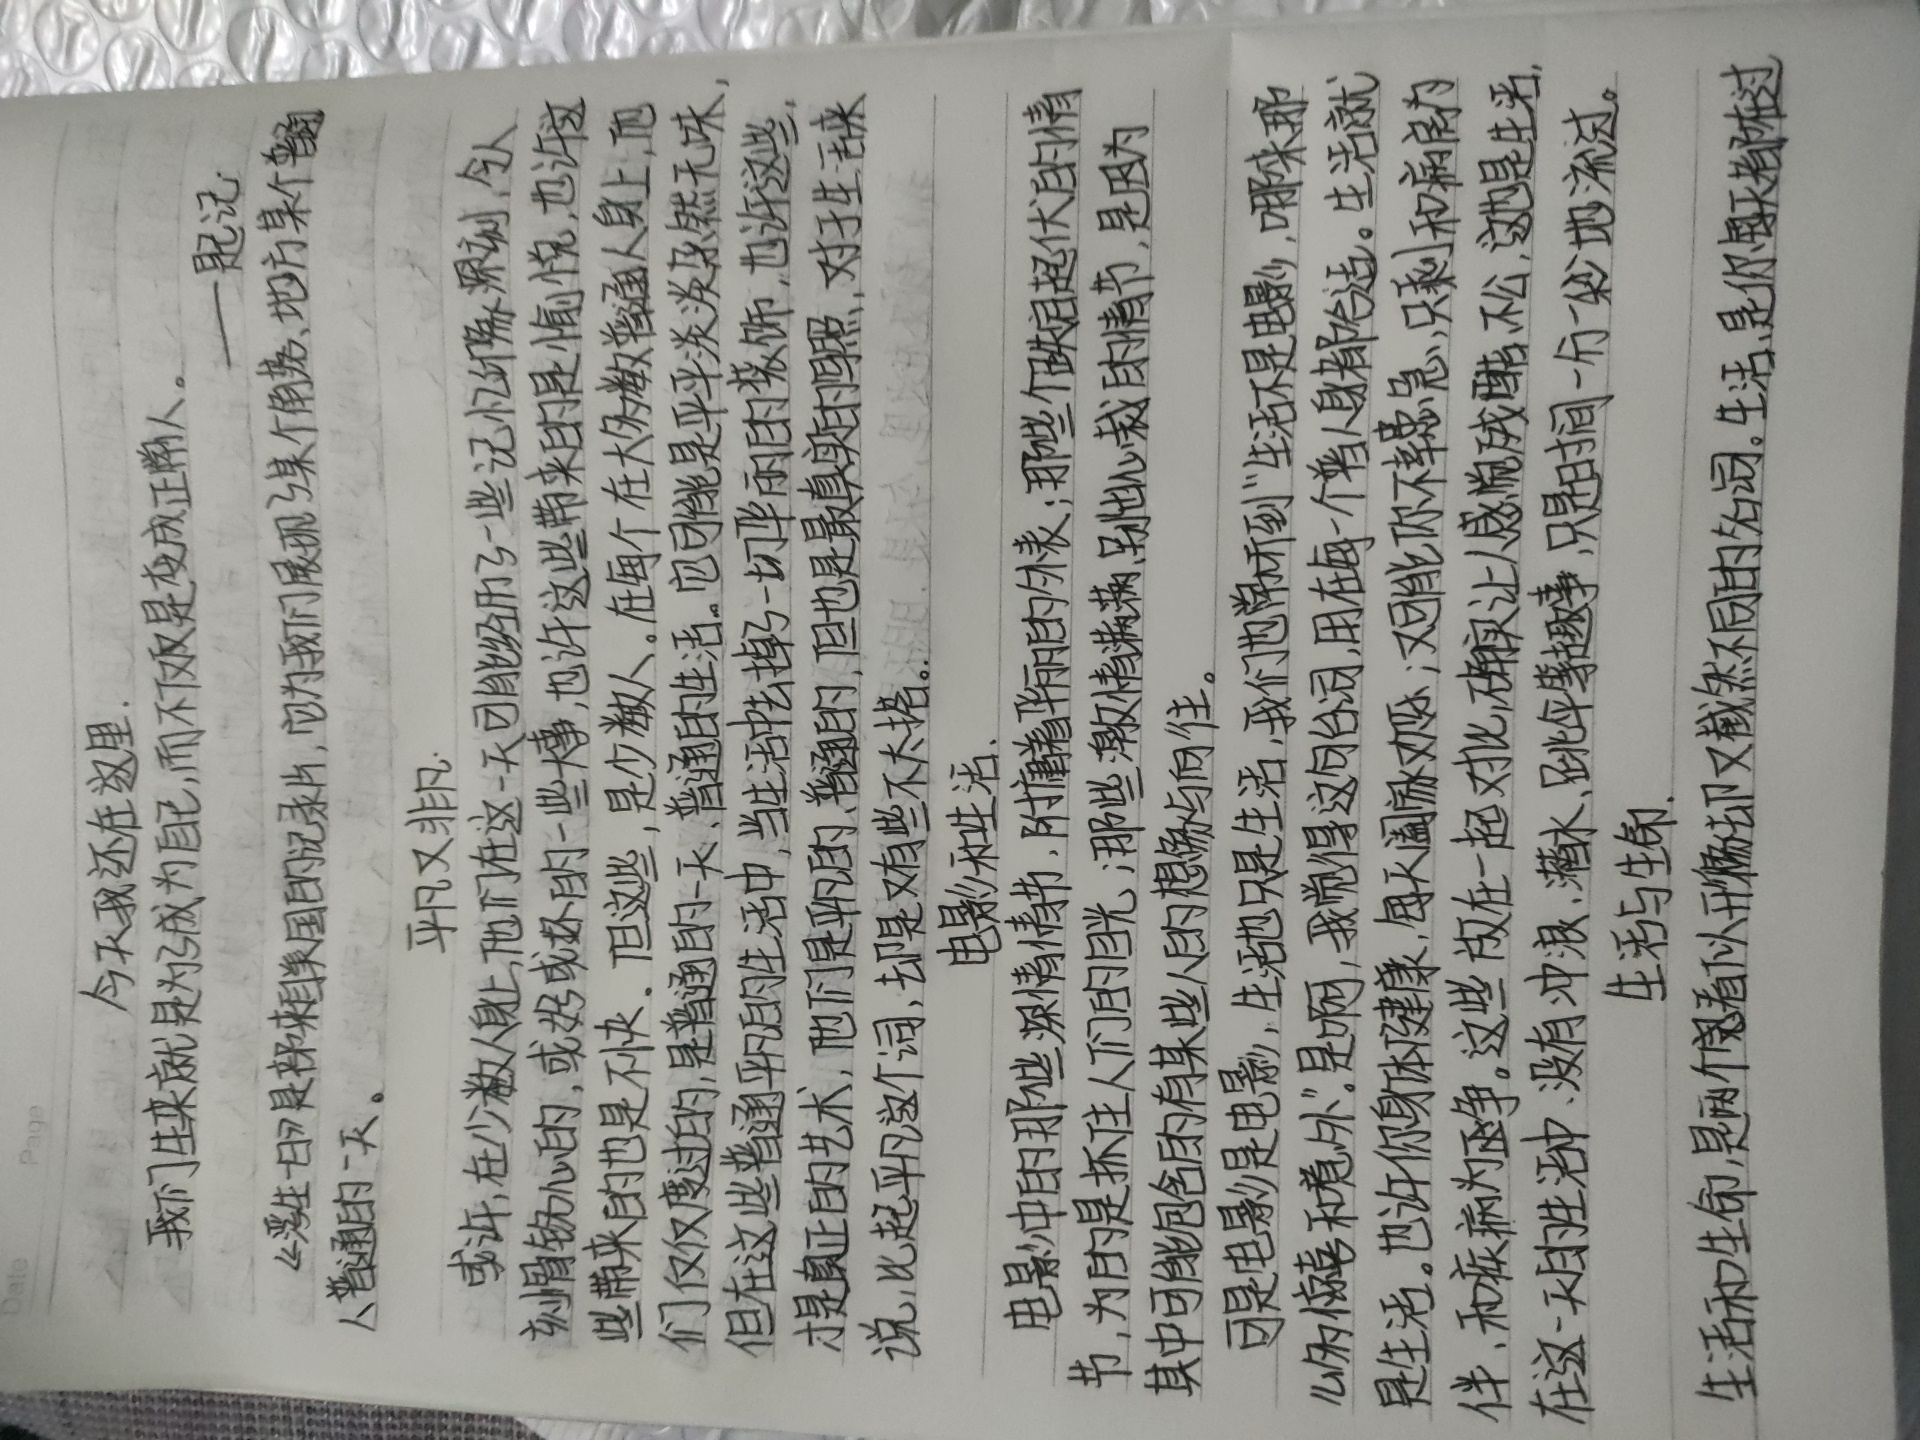 Date
Page
今天我还在这里.
我们生来就是为了成为自己,而不仅仅是变成正常人。
——题记.
《浮生一日》是部来自美国的记录片,它为我们展现了某个角落、地方某个普通
人普通的一天。
平凡又非凡.
或许,在少数人身上,他们在这一天可能经历了一些记忆印象深刻,令人
刻骨铭心的,或好或坏的一些大事,也许这些带来的是愉悦,也许这
些带来的也是不快.但这些,是少数人。在每个在大多数普通人身上,他
们仅仅度过的,是普通的一天、普通的生活..它可能是平平淡淡索然无味,
但在这些普通平凡的生活中,当生活中去掉了一切华丽的装饰,也许这些,
才是真正的艺术,他们是平凡的、普通的,但也是最真实的写照,对于生活来
说,比起平凡这个词,却是又有些不大搭。.
电影和生活.
电影中的那些深情情节,附庸着华丽的外表;那些个跌宕起伏的情
节,为的是抓住人们的目光;那些激情满满,别出心裁的情节,是因为
其中可能包含的有某些人的想象与向往。
可是电影是电影,生活也只是生活,我们也常听到"生活不是电影,哪来那
么多惊喜和意外"。是啊,我觉得这句台词,用在每一个普人身都合适。生活就
是生活。也许你身体健康,每天阖家欢乐;又可能你不幸患急,只剩和病房为
伴,和疾病为争。这些放在一起对比,确实让人感觉残酷,不公,这也是生活,
在这一天的生活中.没有冲浪、潜水、跳伞等趣事,只是时间一分一秒地流过。
生活与生命.
生活和生命,是两个意看似形像却又截然不同的名词。生活,是你每天都在过